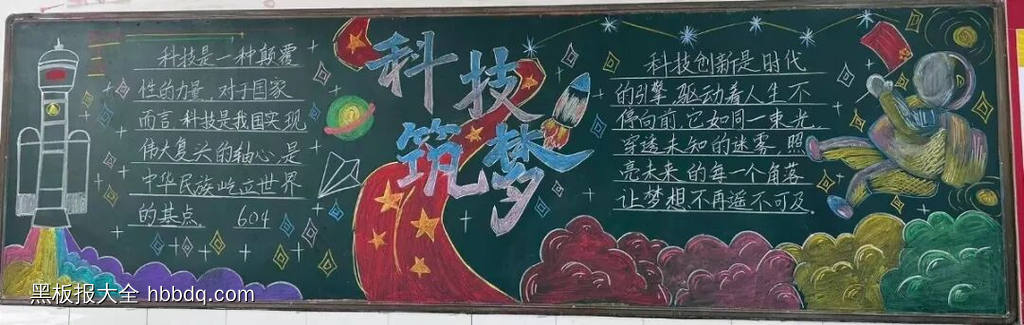 科技是一种颠覆
性的力量,对于国家
而言,科技是我国实现
伟大复兴的轴心,是
中华民族屹立世界
的基点. 604
科技
筑梦
科技创新是时代
的引擎,驱动着人生不
停向前,它如同一束光,
穿透未知的迷雾,照
亮未来的每一个角落
让梦想不再遥不可及.
黑板报大全 hbbdq.com